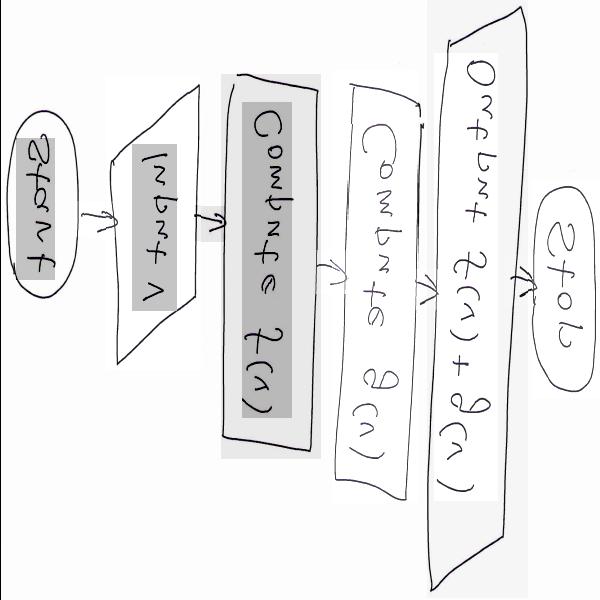 Start
Input n
Compute f(n)
Compute g(n)
Output f(n) + g(n)
Stop